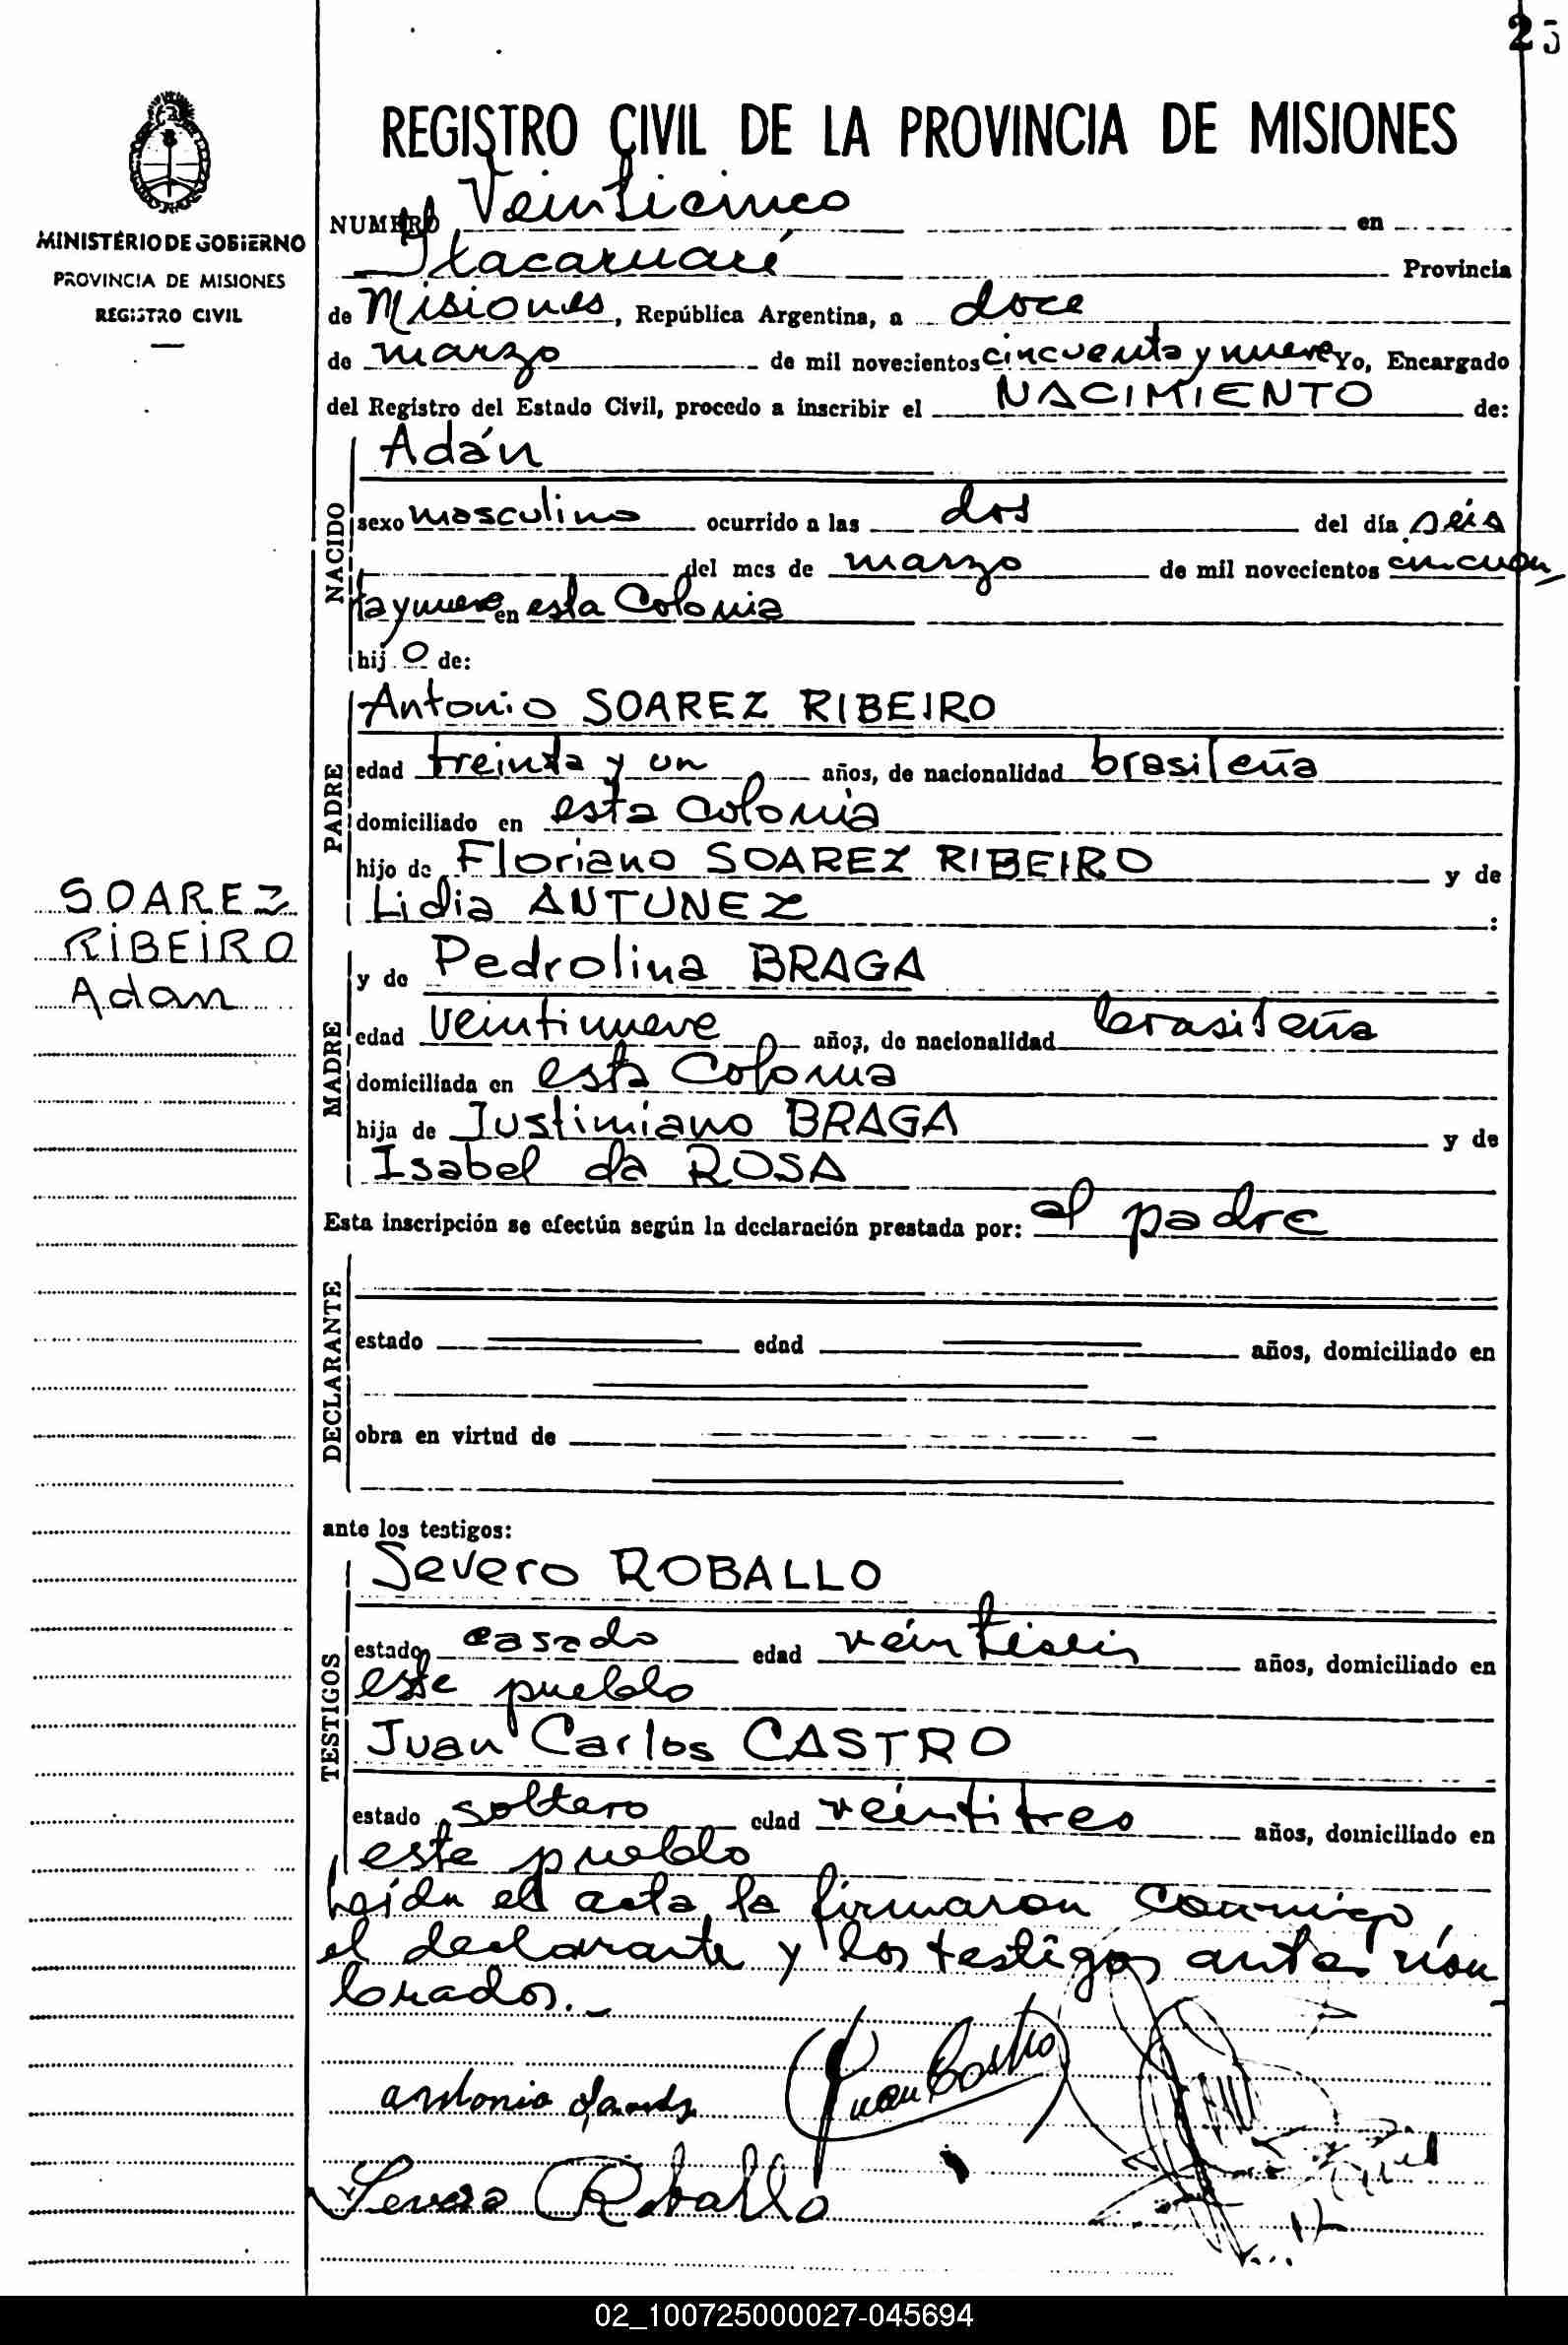 25
REGISTRO CIVIL DE LA PROVINCIA DE MISIONES
MINISTERIO DE GOBIERNO
PROVINCIA DE MISIONES
REGISTRO CIVIL
NUMERO Veinticinco en
Itacaruaré Provincia
de Misiones, República Argentina, a doce
de marzo de mil novecientos cincuenta y nueve Yo, Encargado
del Registro del Estado Civil, procedo a inscribir el NACIMIENTO de:
NACIDO
Adán
sexo masculino ocurrido a las dos del día séis
del mes de marzo de mil novecientos cincuen
ta y nueve en esta Colonia
hijo de:
PADRE
Antonio SOAREZ RIBEIRO
edad treinta y un años, de nacionalidad brasileña
domiciliado en esta colonia
hijo de Floriano SOAREZ RIBEIRO y de
Lidia ANTUNEZ :
SOAREZ
RIBEIRO
Adan
MADRE
y de Pedrolina BRAGA
edad veintinueve años, de nacionalidad brasileña
domiciliada en esta Colonia
hija de Justiniano BRAGA y de
Isabel da ROSA
Esta inscripción se efectúa según la declaración prestada por: el padre
DECLARANTE
estado edad años, domiciliado en
obra en virtud de
ante los testigos:
TESTIGOS
Severo ROBALLO
estado casado edad veintiseis años, domiciliado en
este pueblo
Juan Carlos CASTRO
estado soltero edad veintitres años, domiciliado en
este pueblo
Leída el acta, la firmaron conmigo,
el declarante y los testigos antes nom
brados.-
Juan Castro
antonio
Severo Roballo
02_100725000027-045694